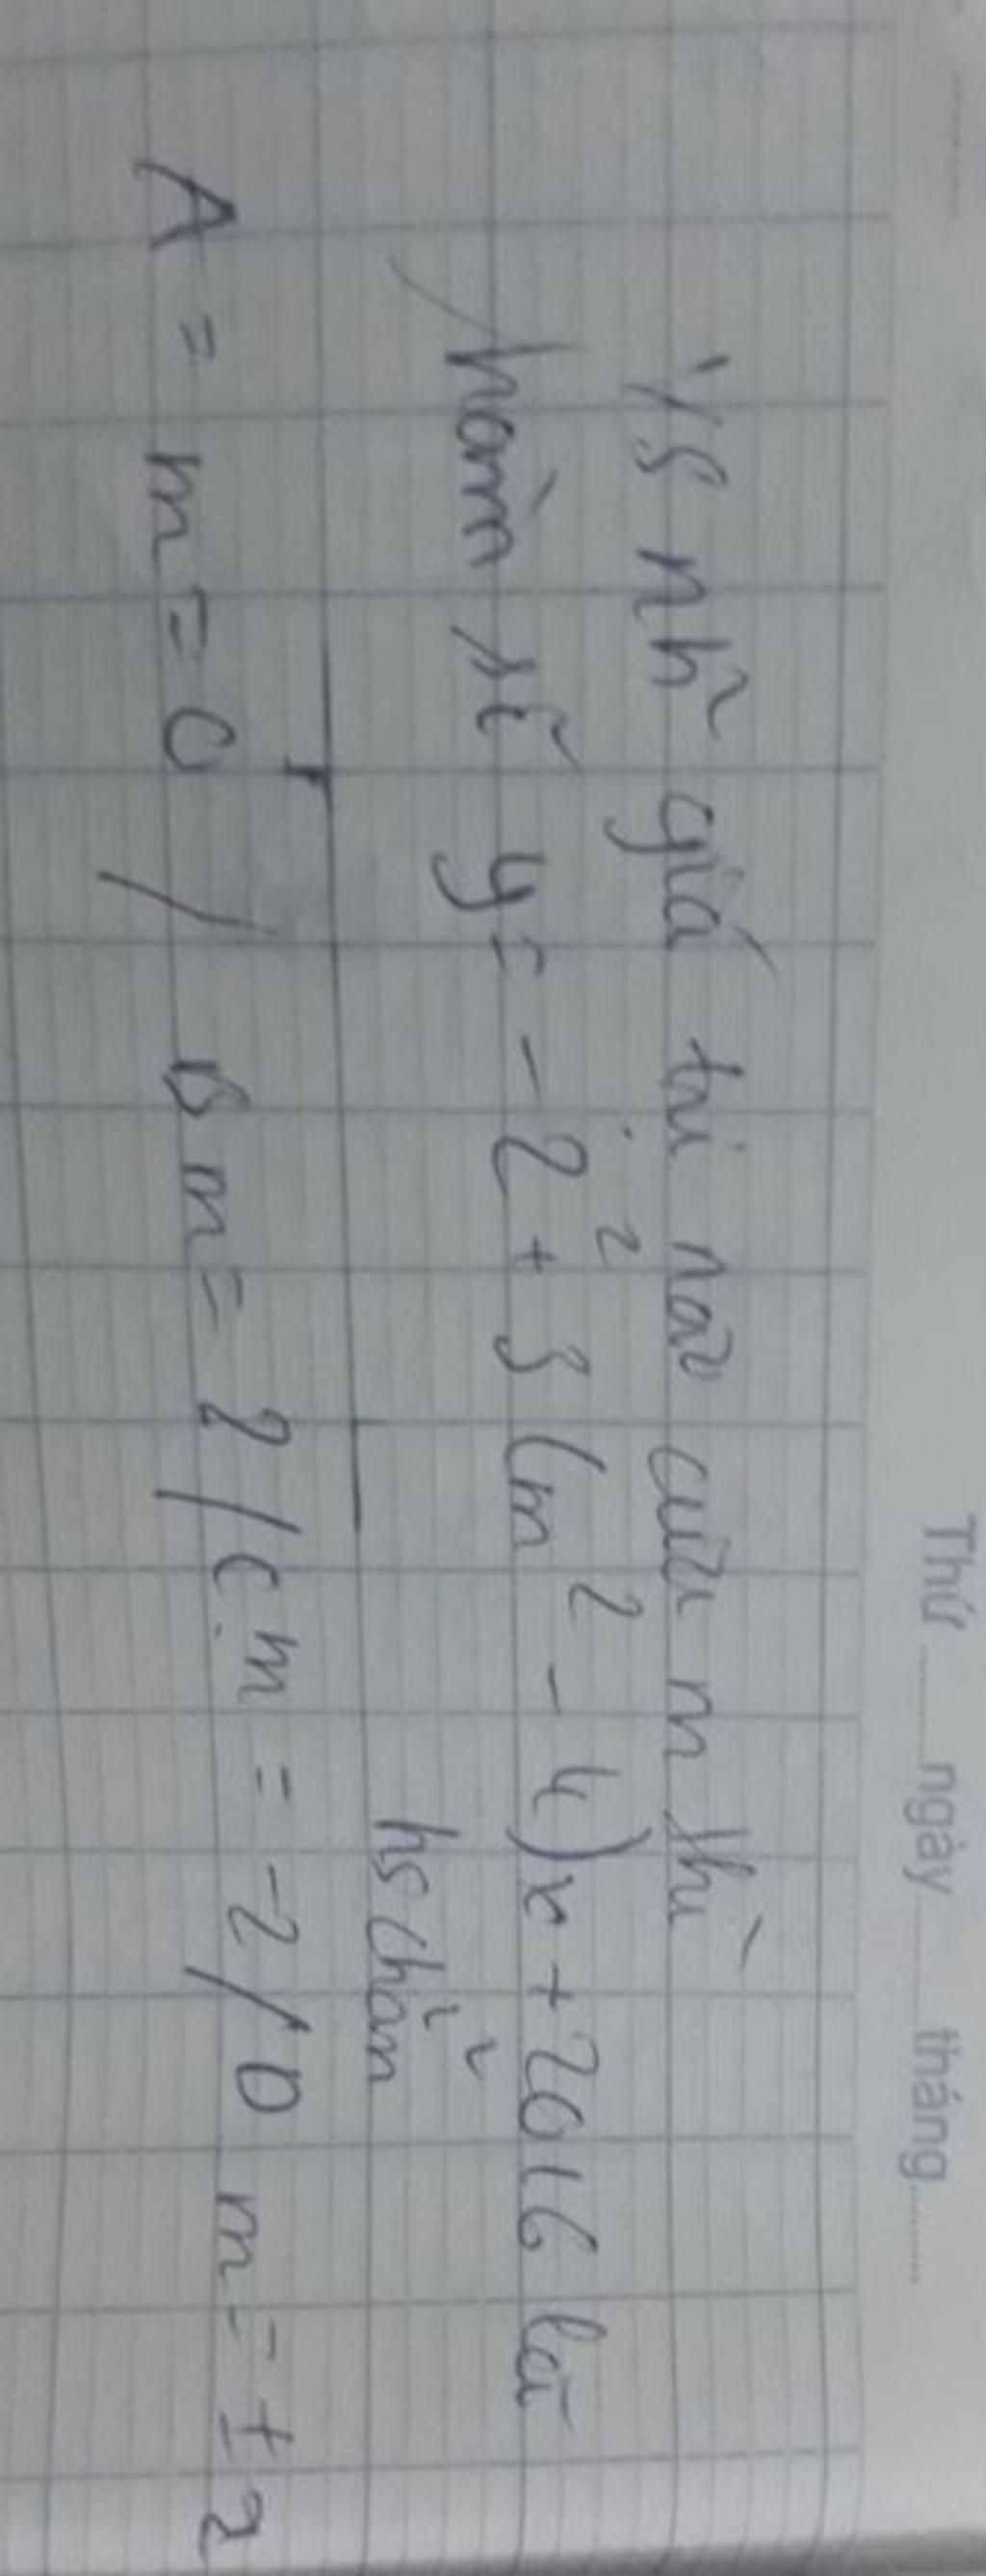 Thứ ......... ngày ......... tháng .........
nh² giá trị nào của m thì
hàm số y = -2² + 3(m² - 4)x + 2016 là
hs chẵn
A = m = 0 / B m = 2 / C. m = -2 / D m = ± 2